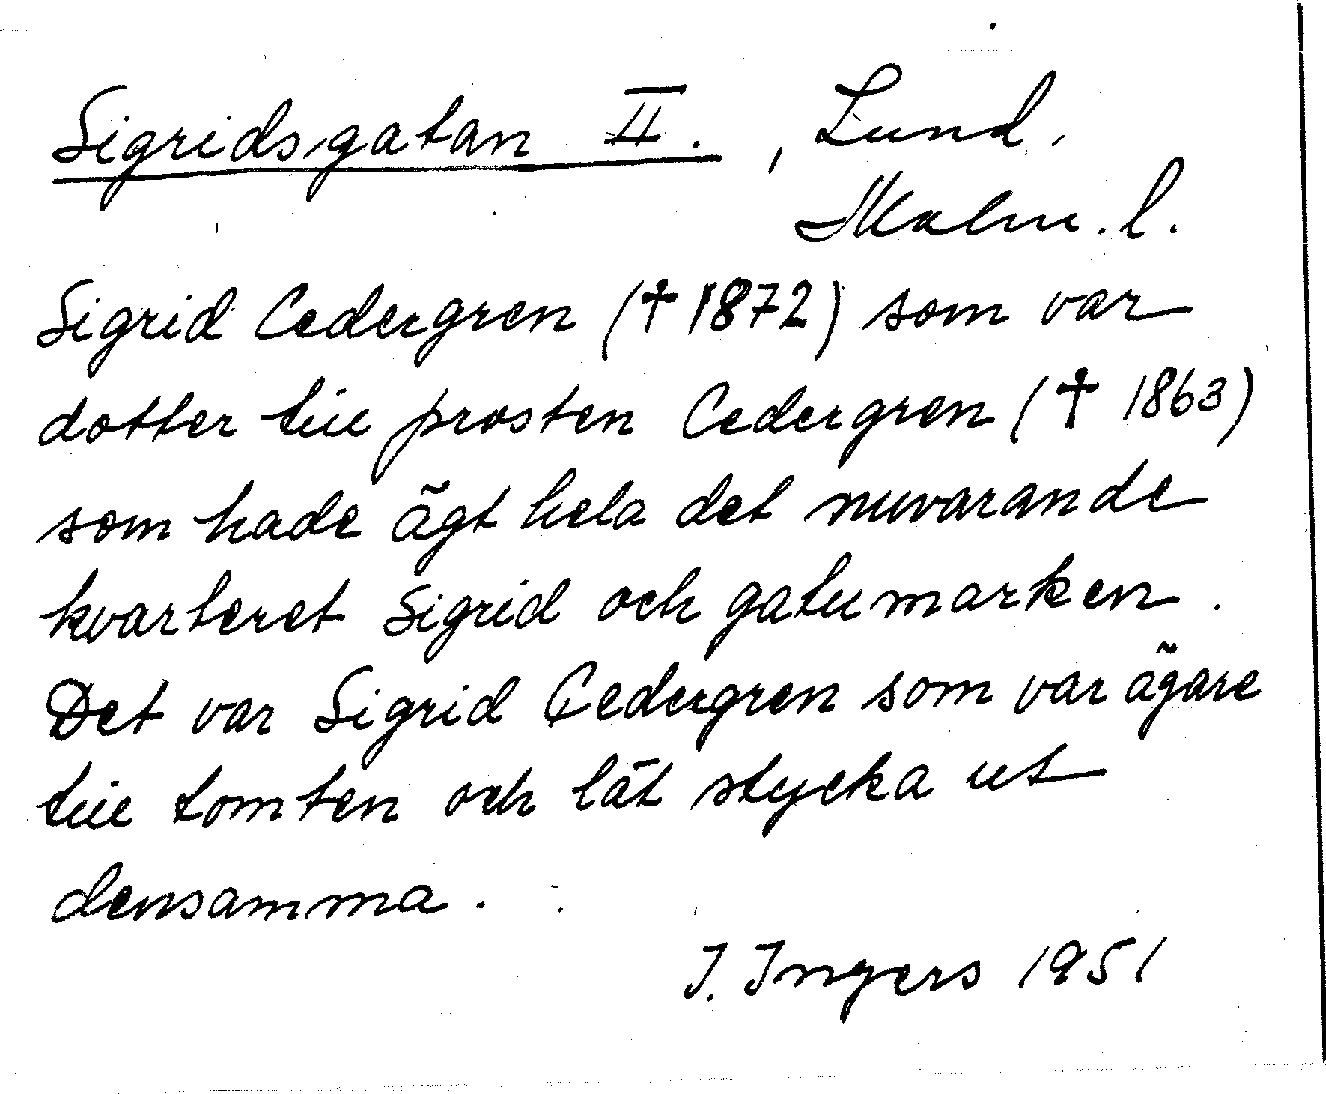 Sigridsgatan II., Lund,
Malm. l.
Sigrid Cedergren († 1872) som var
dotter till prosten Cedergren († 1863)
som hade ägt hela det nuvarande
kvarteret Sigrid och gatumarken.
Det var Sigrid Cedergren som var ägare
till tomten och lät stycka ut
densamma.
I. Ingers 1951